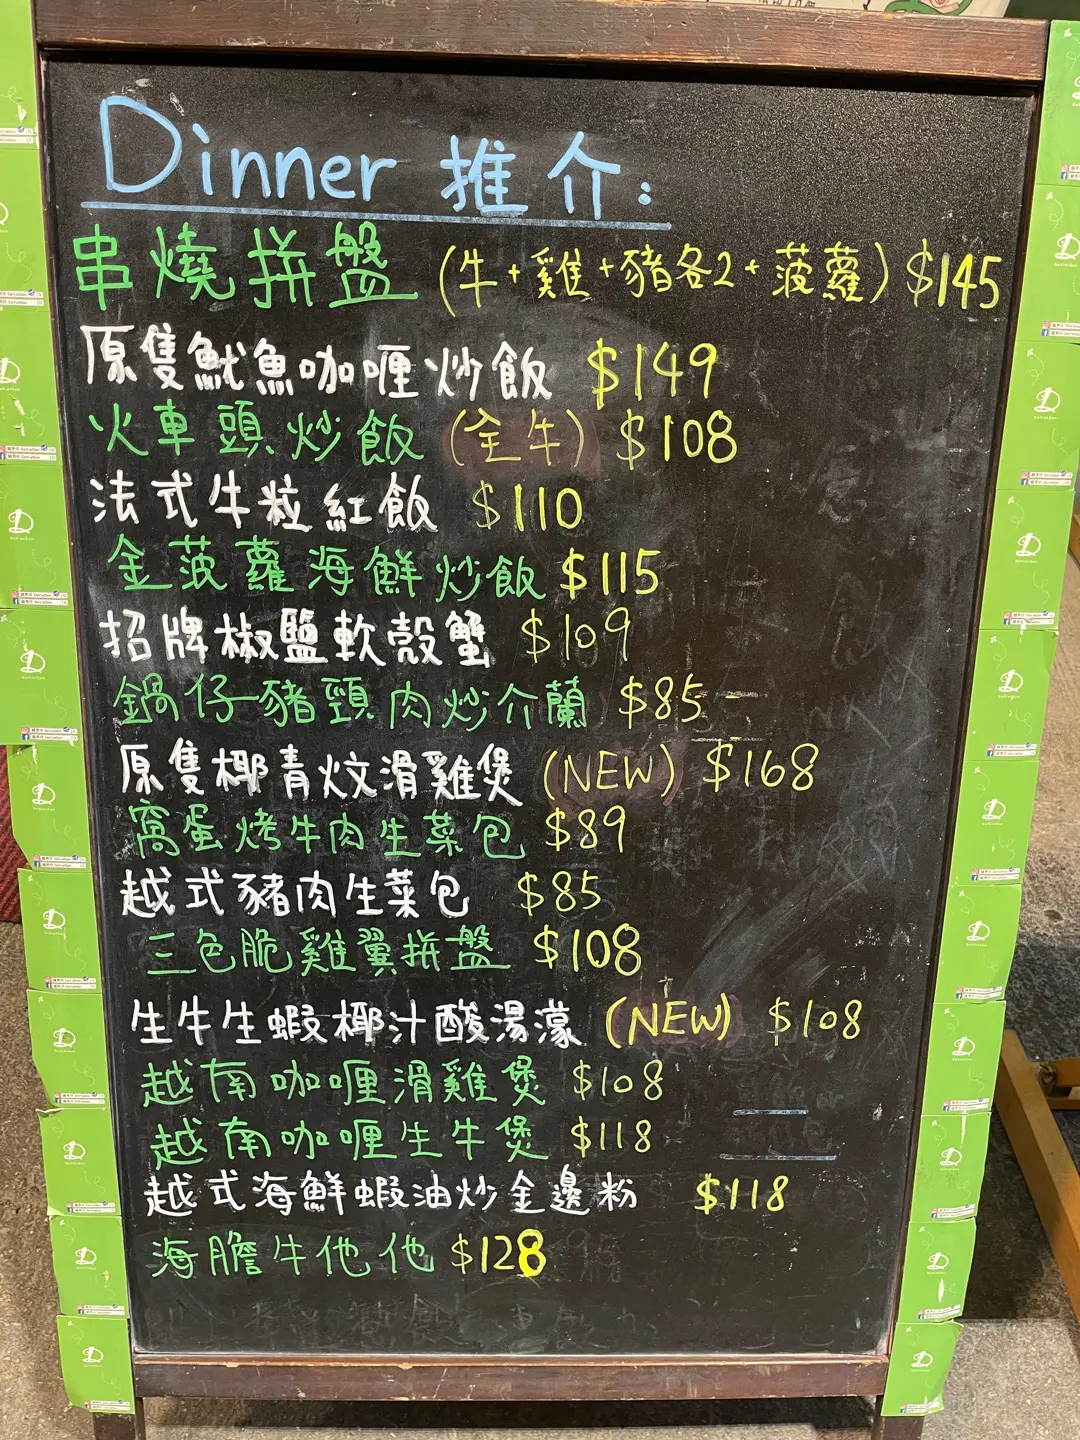 Dinner 推介:
串燒拼盤 (牛+雞+豬各2+菠蘿) $145
原隻魷魚咖喱炒飯 $149
火車頭炒飯 (全牛) $108
法式牛粒紅飯 $110
金菠蘿海鮮炒飯 $115
招牌椒鹽軟殼蟹 $109
鍋仔豬頸肉炒介蘭 $85-
原隻椰青炆滑雞煲 (NEW) $168
窩蛋烤牛肉生菜包 $89
越式豬肉生菜包 $85
三色脆雞翼拼盤 $108
生牛生蝦椰汁酸湯濛 (NEW) $108
越南咖喱滑雞煲 $108
越南咖喱生牛煲 $118
越式海鮮蝦油炒金邊粉 $118
海膽牛他他 $128